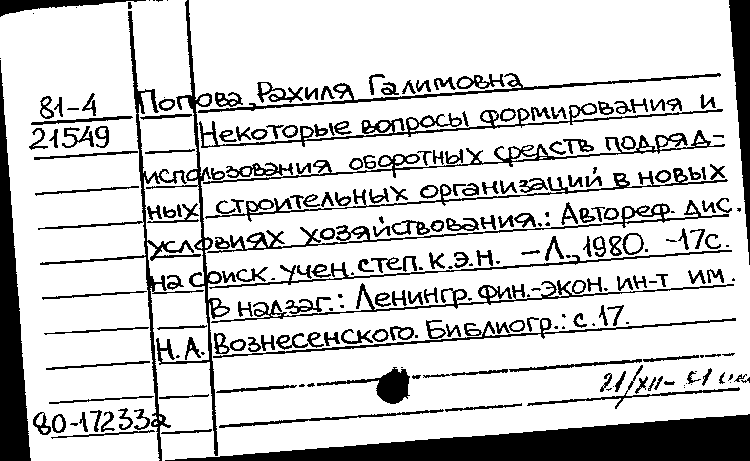 81-4 Попова, Рахиля Галимовна
21549 Некоторые вопросы формирования и
использования оборотных средств подряд-
ных строительных организаций в новых
условиях хозяйствования.: Автореф. дис.
на соиск. учен. степ. к.э.н. -Л., 1980. -17с.
В надзаг.: Ленингр. фин.-экон. ин-т им.
Н.А. Вознесенского. Библиогр.: с.17.
21/XII-
80-172332